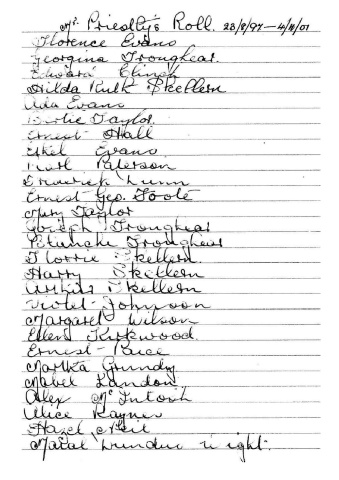 Mr. Priestly's Roll. 28/8/97—4/11/01
Florence Evans
Georgina Troughear
Edward Clinch
Hilda Ruth Skellern
Ada Evans
Bertie Taylor.
Ernest Hall
Ethel Evans
Paterson
Frederick
Ernest Geo. Foote
Mary Taylor
Joseph Troughear
Blanche Troughear
Florrie Skellern.
Harry Skellern
Arthur Skellern
Violet Johnson
Margaret Wilson
Ellen Kirkwood.
Ernest Price
Martha Grundy
Mabel Landon
Alex McIntosh
Alice Rayner
Hazel Neil